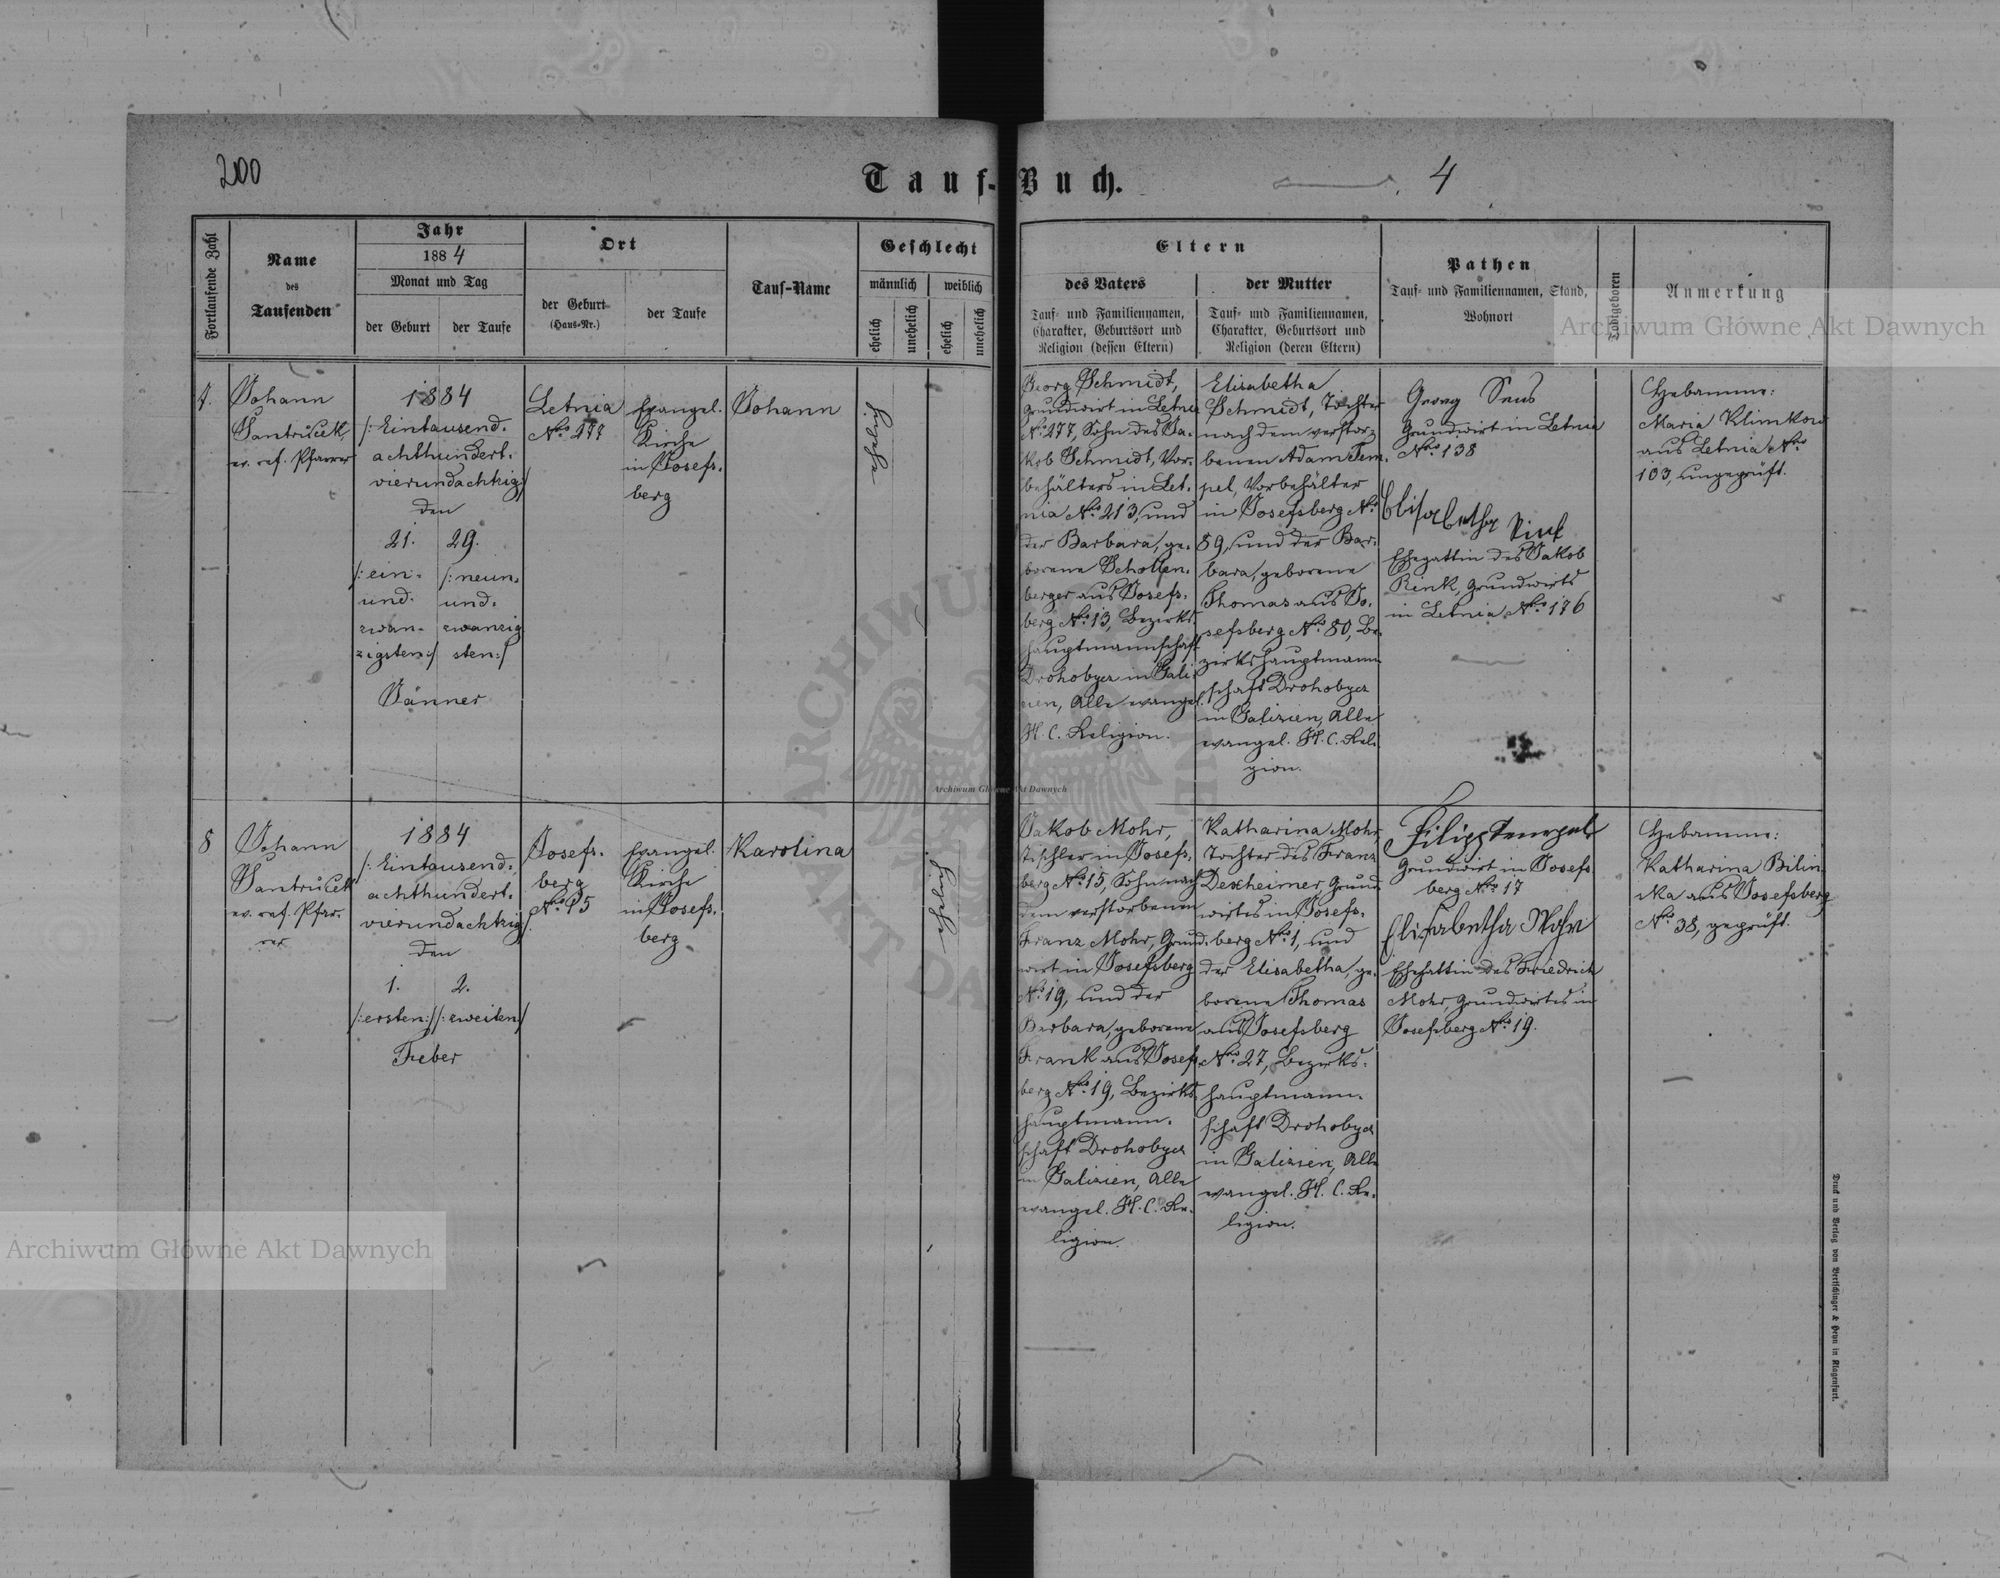 200
Tauf-Buch.
4
Fortlaufende Zahl
Name
des
Taufenden
Jahr
1884
Monat und Tag
der Geburt
der Taufe
Ort
der Geburt
(Haus-Nr.)
der Taufe
Tauf-Name
Geschlecht
männlich
weiblich
ehelich
unehelich
ehelich
unehelich
Eltern
des Vaters
Tauf- und Familiennamen,
Charakter, Geburtsort und
Religion (dessen Eltern)
der Mutter
Tauf- und Familiennamen,
Charakter, Geburtsort und
Religion (deren Eltern)
Pathen
Tauf- und Familiennamen, Stand,
Wohnort
Todtgeboren
Anmerkung
Archiwum Główne Akt Dawnych
7.
Johann
Jantrůcek,
ev. ref. Pfarrer
1884
/: Eintausend-
achthundert-
vierundachtzig:/
den
21.
/: ein-
und-
zwan-
zigsten:/
29.
/: neun-
und-
zwanzig
sten:/
Jänner
Letnia
No. 277
Evangel.
Kirche
in Josefs-
berg
Johann
Georg Schmidt,
Grundwirt in Letnia
No. 277, Sohn des Ja-
kob Schmidt, Vor-
behälters in Let-
nia No. 213, und
der Barbara, ge-
borene Schollen-
berger aus Josefs-
berg No. 13, Bezirks-
hauptmannschaft
Drohobycz in Gali-
zien, Alle evangel.
H. C. Religion.
Elisabetha
Schmidt, Tochter
nach dem verstor-
benen Adam Tem-
pel, Vorbehälter
in Josefsberg No.
89, und der Bar-
bara, geborene
Thomas aus Jo-
sefsberg No. 80, Be-
zirkshauptmann-
schaft Drohobycz
in Galizien, Alle
evangel. H. C. Reli-
gion.
Georg Sens
Grundwirt in Letnia
No. 138
Elisabetha Rink
Ehegattin des Jakob
Rink, Grundwirts
in Letnia No. 176
Hebamme:
Maria Klimkow
aus Letnia No.
103, ungeprüft.
Archiwum Główne Akt Dawnych
8
Johann
Jantrůcek
ev. ref. Pfar-
rer
1884
/: Eintausend-
achthundert-
vierundachtzig:/
den
1.
/: ersten:/
2.
/: zweiten:/
Feber
Josefs-
berg
No. 15
Evangel.
Kirche
in Josefs-
berg
Karolina
Jakob Mohr,
Tischler in Josefs-
berg No. 15, Sohn nach
dem verstorbenen
Franz Mohr, Grund-
wirt in Josefsberg
No. 19, und der
Barbara, geborene
Frank aus Josefs-
berg No. 19, Bezirks-
hauptmann-
schaft Drohobycz
in Galizien, Alle
evangel. H. C. Re-
ligion.
Katharina Mohr,
Tochter des Franz
Dexheimer, Grund-
wirtes in Josefs-
berg No. 1, und
der Elisabetha, ge-
borene Thomas
aus Josefsberg
No. 27, Bezirks-
hauptmann-
schaft Drohobycz
in Galizien, Alle
evangel. H. C. Re-
ligion.
Filipp Tempel
Grundwirt in Josefs
berg No. 17
Elisabetha Mohr
Ehegattin des Friedrich
Mohr Grundwirtes in
Josefsberg No. 19.
Hebamme:
Katharina Bilin-
ka aus Josefsberg
No. 38, geprüft.
Archiwum Główne Akt Dawnych
Druck und Verlag von Bertschinger & Heyn in Klagenfurt.